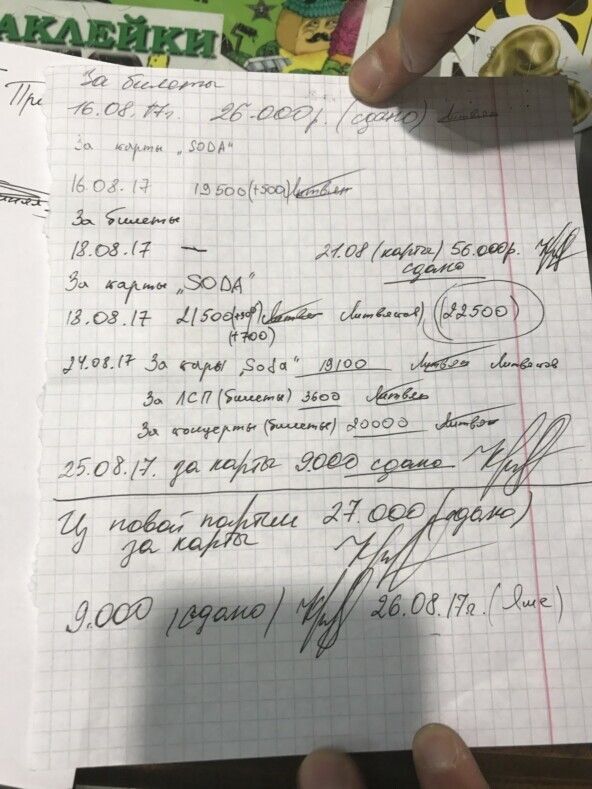 АКЛЕЙКИ
Пре
За билеты
16.08.17г. 26.000р. (сдано) Литвяк
За карты „SODA"
16.08.17 19500(+500) Литвяк
За билеты
18.08.17 — 21.08 (карты) 56.000р.
сдано
За карты „SODA"
18.08.17 21500(+300) Литвяк (22500)
(+700)
24.08.17 За кары „Soda" 19100 Литвяк
За ЛСП (билеты) 3600 Литвяк
За концерты (билеты) 20000 Литвяк
25.08.17. за карты 9.000 сдано
Из новой партии 27.000 (сдано)
за карты
9.000 (сдано) 26.08.17г. (